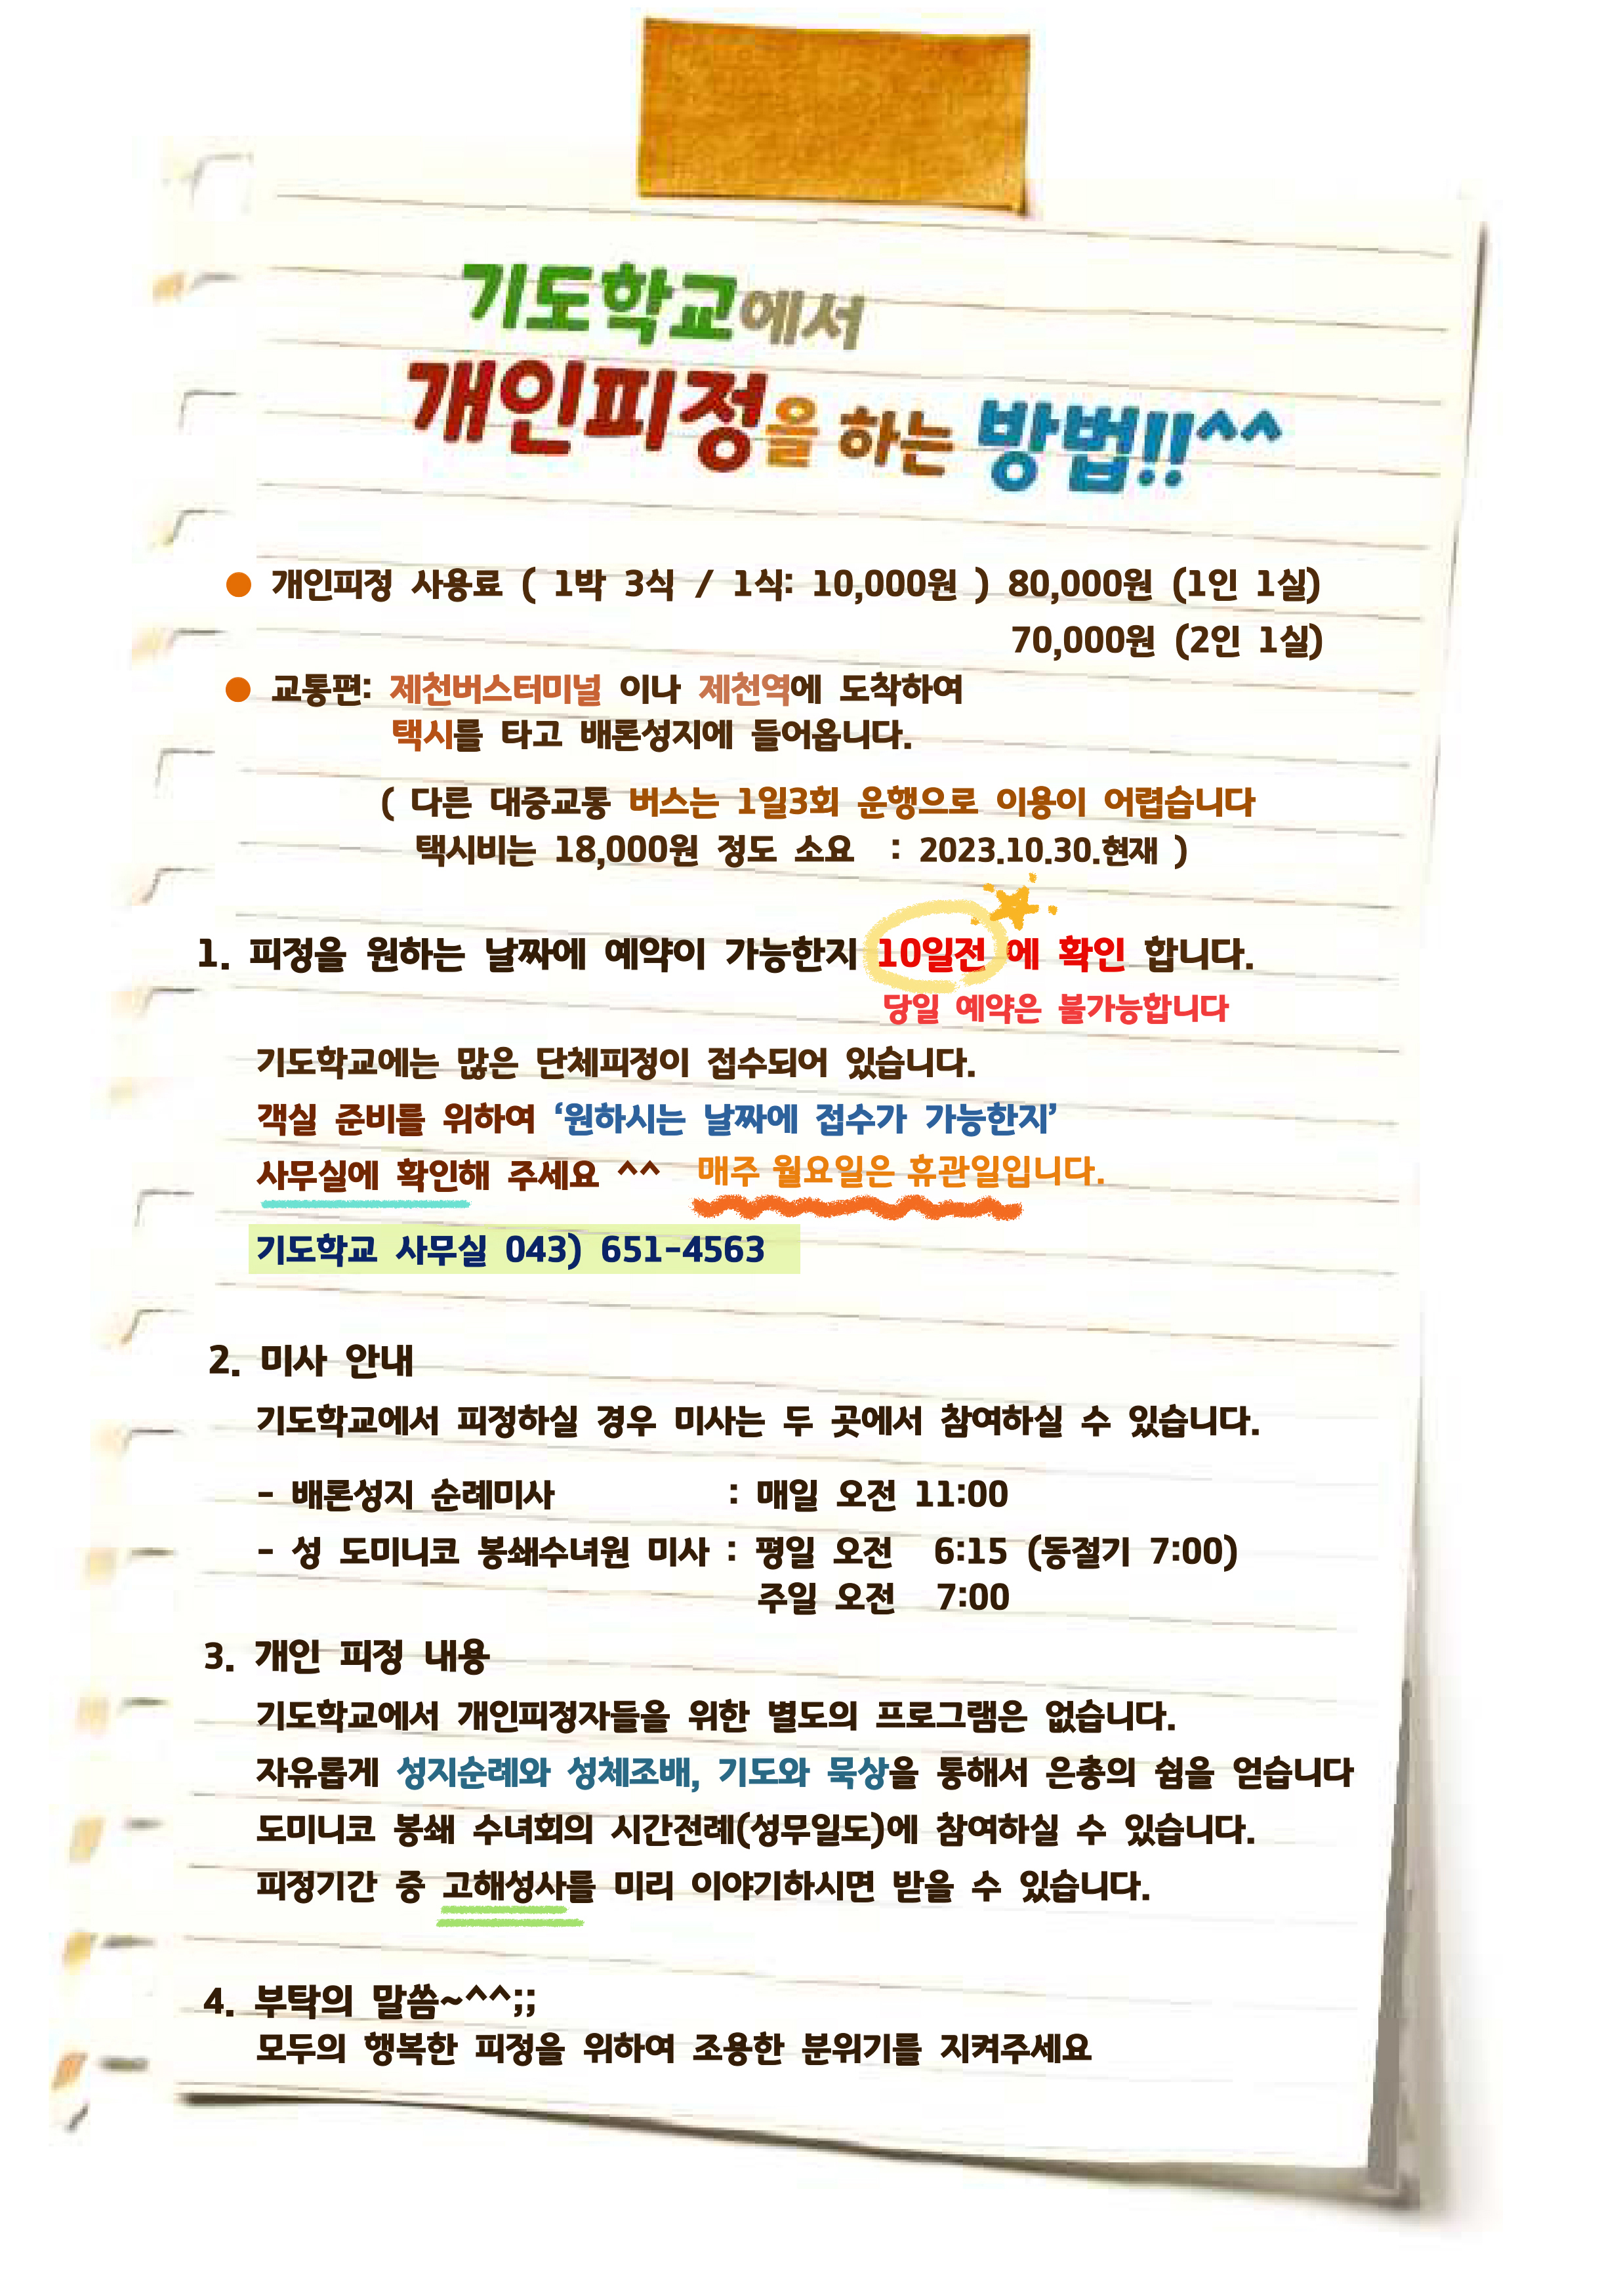 기도학교에서
개인피정을 하는 방법!!^^
● 개인피정 사용료 ( 1박 3식 / 1식: 10,000원 ) 80,000원 (1인 1실)
70,000원 (2인 1실)
● 교통편: 제천버스터미널 이나 제천역에 도착하여
택시를 타고 배론성지에 들어옵니다.
( 다른 대중교통 버스는 1일3회 운행으로 이용이 어렵습니다
택시비는 18,000원 정도 소요 : 2023.10.30.현재 )
1. 피정을 원하는 날짜에 예약이 가능한지 10일전 에 확인 합니다.
당일 예약은 불가능합니다
기도학교에는 많은 단체피정이 접수되어 있습니다.
객실 준비를 위하여 ‘원하시는 날짜에 접수가 가능한지’
사무실에 확인해 주세요 ^^ 매주 월요일은 휴관일입니다.
기도학교 사무실 043) 651-4563
2. 미사 안내
기도학교에서 피정하실 경우 미사는 두 곳에서 참여하실 수 있습니다.
- 배론성지 순례미사 : 매일 오전 11:00
- 성 도미니코 봉쇄수녀원 미사 : 평일 오전 6:15 (동절기 7:00)
주일 오전 7:00
3. 개인 피정 내용
기도학교에서 개인피정자들을 위한 별도의 프로그램은 없습니다.
자유롭게 성지순례와 성체조배, 기도와 묵상을 통해서 은총의 쉼을 얻습니다
도미니코 봉쇄 수녀회의 시간전례(성무일도)에 참여하실 수 있습니다.
피정기간 중 고해성사를 미리 이야기하시면 받을 수 있습니다.
4. 부탁의 말씀~^^;;
모두의 행복한 피정을 위하여 조용한 분위기를 지켜주세요